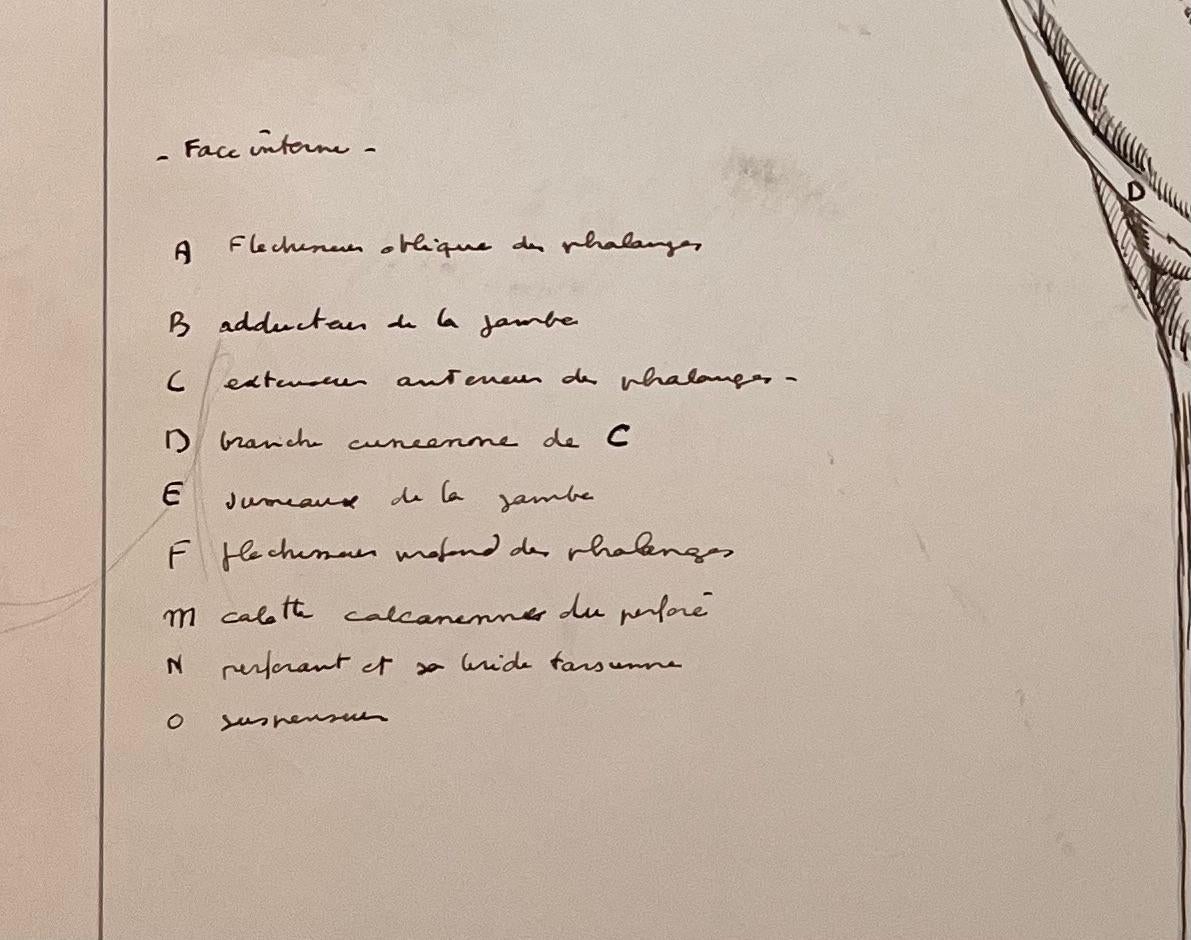 - Face interne -
A Flechisseur oblique des phalanges
B adducteur de la jambe
C extenseur anterieur des phalanges -
D branche cuneenne de C
E Jumeaux de la jambe
F flechisseur profond des phalanges
M calotte calcaneenne du perforé
N perforant et sa bride tarsienne
O suspenseur
D